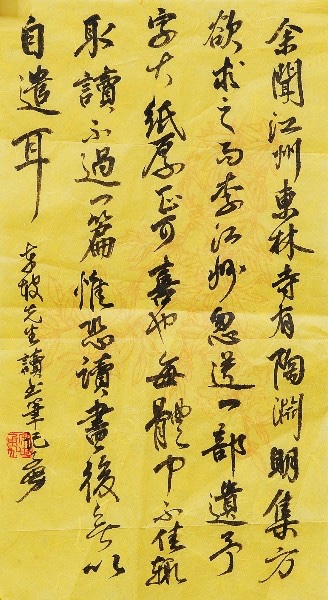 余聞江州東林寺有陶淵明集方
欲求之而李江州忽送一部遺予
字大紙厚甚可喜也每體中不佳輒
取讀不過一篇惟恐讀盡後無以
自遣耳
東坡先生讀書筆記